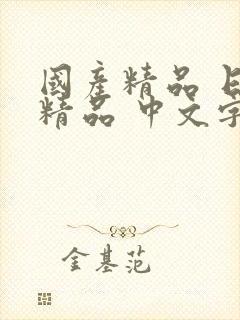 國産精品
精品 中文字
金基范